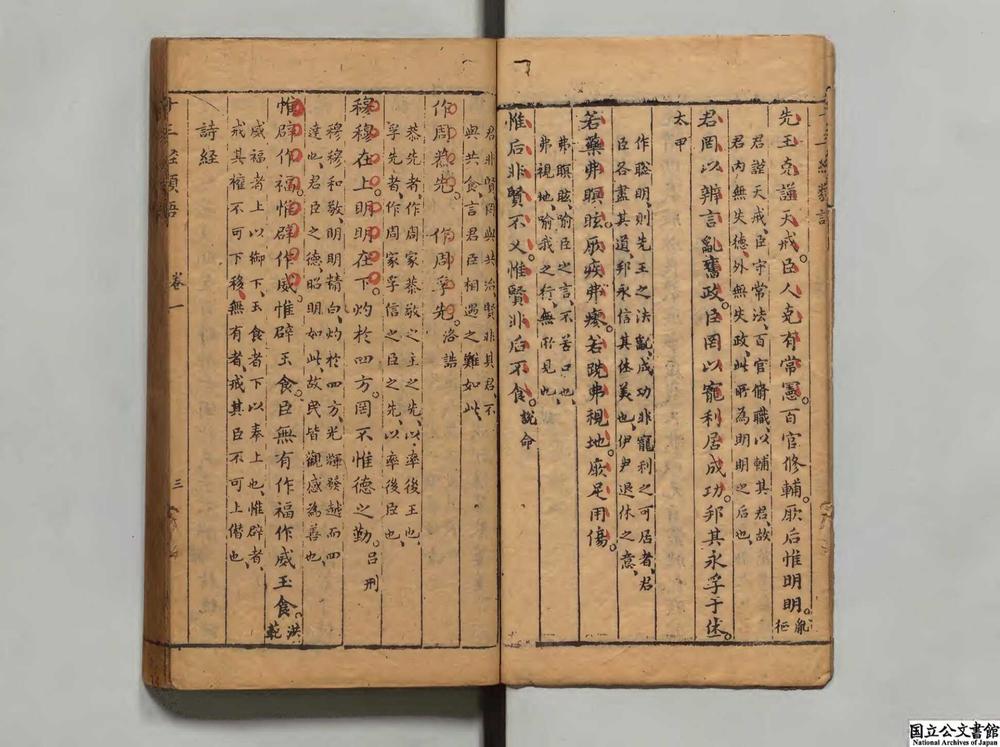 先王克謹天戒。臣人克有常憲。百官修輔。厥后惟明明。胤征
君謹天戒、臣守常法、百官脩職、以輔其君、故
君內無失德、外無失政、此所為明明之后也、
君罔以辨言亂舊政。臣罔以寵利居成功。邦其永孚于休。
太甲
作聡明、則先王之法亂、成功非寵利之可居者、君
臣各盡其道、邦永信其休美也、伊尹退休之意、
若藥弗瞑眩。厥疾弗瘳。若跣弗視地。厥足用傷。
弗瞑眩、喻臣之言、不苦口也、
弗視地、喻我之行、無所見也、
惟后非賢不乂。惟賢非后不食。說命
君非賢、罔與共治、賢非其君、不
與共食、言君臣相遇之難如此、
作周恭先。作周孚先。洛誥
恭先者、作周家恭敬之主之先、以率後王也、
孚先者、作周家孚信之臣之先、以率後臣也、
穆穆在上。明明在下。灼於四方。罔不惟德之勤。呂刑
穆穆和敬、明明精白、灼於四方、光輝發越而四
達也、君臣之德、昭明如此、故民皆觀感為善也、
惟辟作福。惟辟作威。惟辟玉食。臣無有作福作威玉食。洪範
威福者、上以御下、玉食者、下以奉上也、惟辟者、
戒其權不可下移、無有者、戒其臣不可上僭也、
詩経
十三経類語 卷一 三
国立公文書館
National Archives of Japan